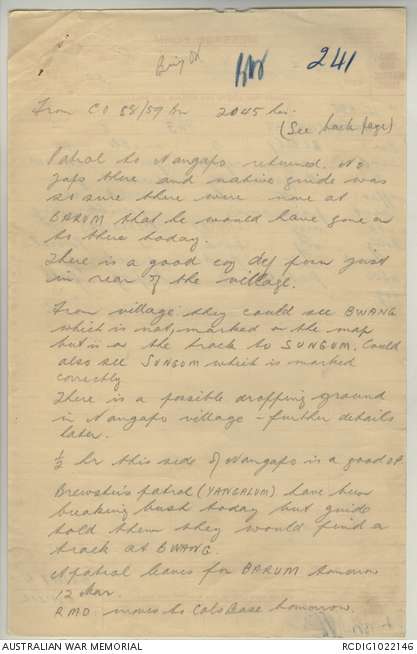 241
From CO 58/59 Bn 2045 hrs.
(See back page)
Patrol to Nangapo returned. No
Japs there and native guide was
so sure there were none at
BARUM that he would have gone on
to there today.
There is a good coy def posn just
in rear of the village.
From village they could see BWANG
which is not marked on the map
but is on the track to SUNGUM. Could
also see SUNGUM which is marked
correctly
There is a possible dropping ground
in Nangapo village - further details
later.
½ hr this side of Nangapo is a good
Brewster's patrol (YANGALUM) have been
breaking bush today but guide
told them they would find a
track at BWANG.
A patrol leaves for BARUM tomorrow
12 Mar.
RMO moves to Cols Base tomorrow.
AUSTRALIAN WAR MEMORIAL
RCDIG1022146